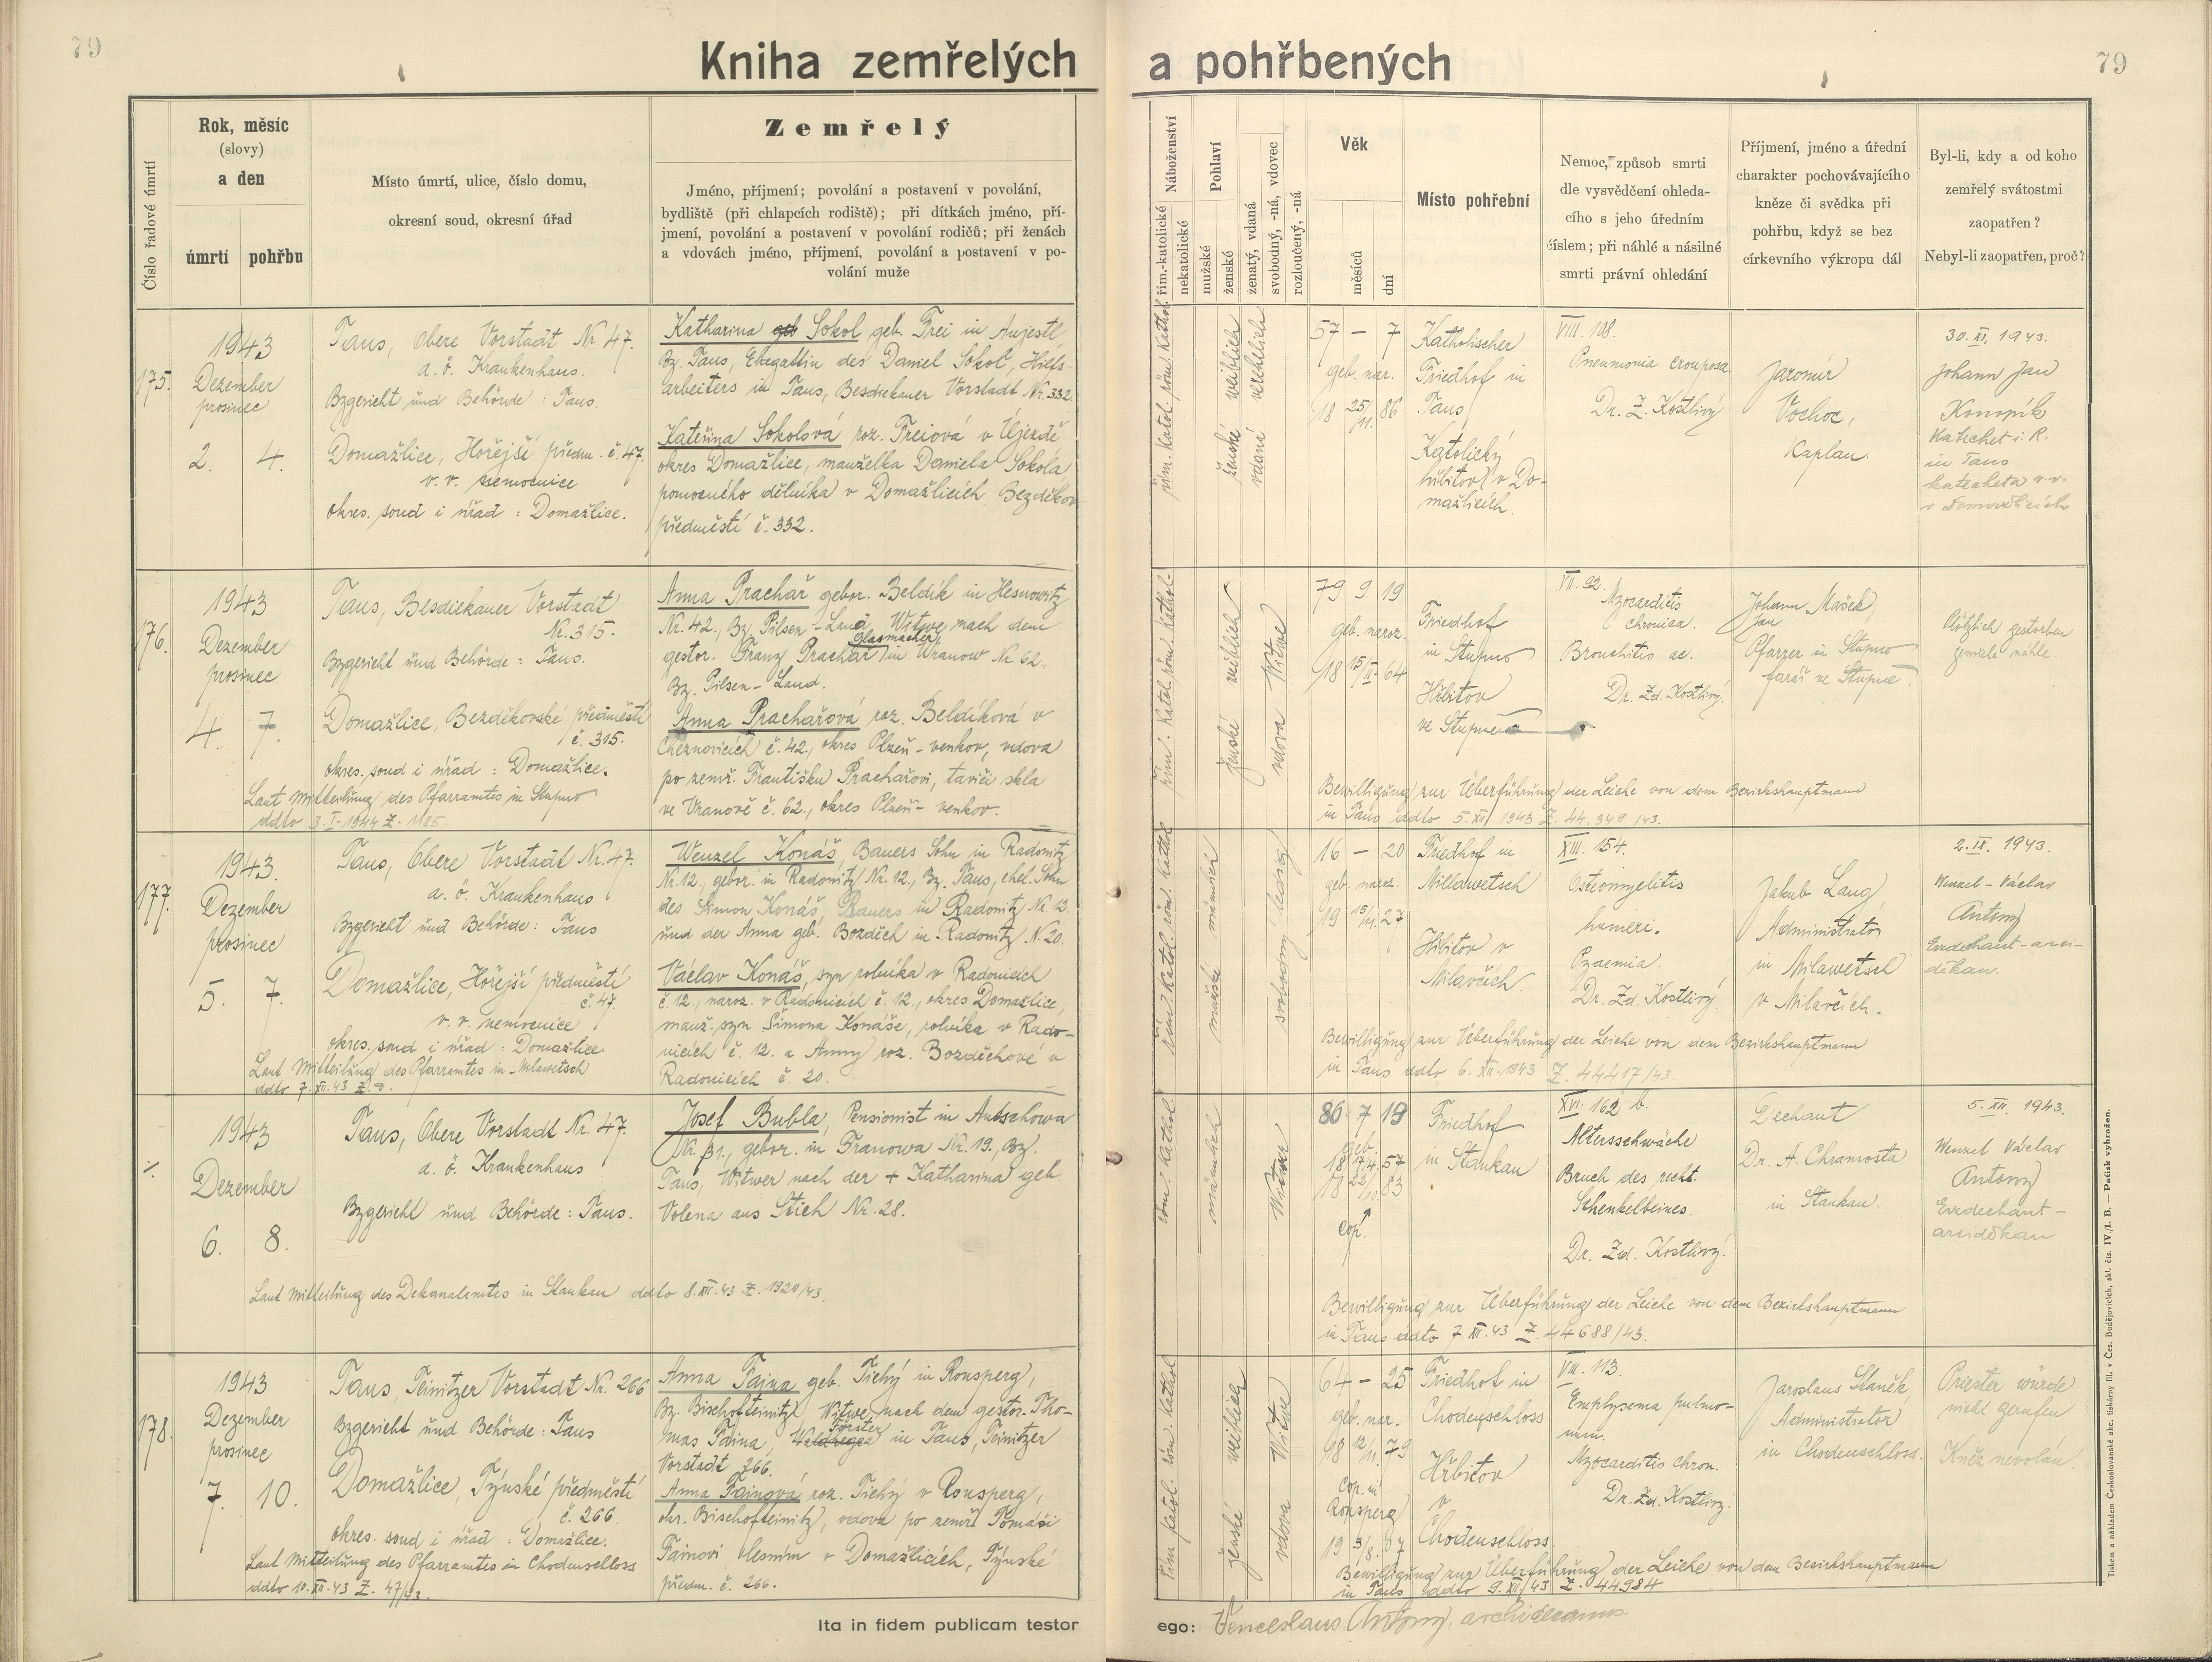 79
Kniha zemřelých a pohřbených
79
Číslo řadové úmrtí
Rok, měsíc
(slovy)
a den
úmrtí
pohřbu
Místo úmrtí, ulice, číslo domu,
okresní soud, okresní úřad
Zemřelý
Jméno, příjmení; povolání a postavení v povolání,
bydliště (při chlapcích rodiště); při dítkách jméno, pří-
jmení, povolání a postavení v povolání rodičů; při ženách
a vdovách jméno, příjmení, povolání a postavení v po-
volání muže
Náboženství
řím.-katolické
nekatolické
Pohlaví
mužské
ženské
ženatý, vdaná
svobodný, -ná, vdovec
rozloučený, -ná
Věk
měsíců
dní
Místo pohřební
Nemoc, způsob smrti
dle vysvědčení ohleda-
cího s jeho úředním
číslem; při náhlé a násilné
smrti právní ohledání
Příjmení, jméno a úřední
charakter pochovávajícího
kněze či svědka při
pohřbu, když se bez
církevního výkropu dál
Byl-li, kdy a od koho
zemřelý svátostmi
zaopatřen?
Nebyl-li zaopatřen, proč?
175.
1943
Dezember
prosinec
2. 4.
Taus, Obere Vorstadt Nr. 47.
a. ö. Krankenhaus.
Bzgericht und Behörde: Taus.
Domažlice, Hořejší předm. č. 47.
v. v. nemocnice
okres. soud i úřad: Domažlice.
Katharina geb Sokol geb. Frei in Aujestl,
Bz. Taus, Ehegattin des Daniel Sokol, Hilfs-
arbeiters in Taus, Besdiekauer Vorstadt Nr. 332.
Kateřina Sokolová roz. Freiová v Újezdě
okres Domažlice, manželka Daniela Sokola
pomocného dělníka v Domažlicích, Bezděkov.
předměstí č. 332.
řím. katol. röm. kathol.
ženské weiblich
vdaná verehlich
57 – 7
geb. nar.
18 25/11. 86
Katholischer
Friedhof in
Taus
Katolický
hřbitov v Do-
mažlicích.
VIII. 108.
Pneumonia crouposa
Dr. Z. Kostlivý
Jaromír
Vochoc,
Kaplan.
30. XI. 1943.
Johann Jan
Konopík
Katechet i. R.
in Taus
katecheta v. v.
v Domažlicích
176.
1943
Dezember
prosinec
4. 7.
Taus, Besdiekauer Vorstadt
Nr. 315.
Bzgericht und Behörde: Taus.
Domažlice, Bezděkovské předměstí
č. 315.
okres. soud i úřad: Domažlice.
Laut Mitteilung des Pfarramtes in Stupno
ddto 3. I. 1944 Z. 1185.
Anna Prachař gebor. Beldík in Hesnowitz
Nr. 42., Bz. Pilsen-Land, Witwe nach dem
Glasmacher
gestor. Franz Prachař in Wranow Nr 62.,
Bz. Pilsen-Land.
Anna Prachařová roz. Beldíková v
č. 42., okres Plzeň-venkov, vdova
po zemř. Františku Prachařovi, taviči skla
ve Vranově č. 62., okres Plzeň-venkov.
řím. katol. röm. kathol.
ženské weiblich
vdova Witwe
79 9 19
geb. naroz.
18 15/II. 64
Friedhof
in Stupno
Hřbitov
ve Stupně
VII. 92.
Myocarditis
chronica.
Bronchitis ac.
Dr. Zd. Kostlivý.
Johann Mašek,
Jan
Pfarrer in Stupno
farář ve Stupně.
Plötzlich gestorben
zemřela náhle
Bewilligung zur Überführung der Leiche von dem Bezirkshauptmann
in Taus ddto 5. XII. 1943 Z. 44.349/43.
177.
1943.
Dezember
prosinec
5. 7.
Taus, Obere Vorstadt Nr. 47.
a. ö. Krankenhaus
Bzgericht und Behörde: Taus
Domažlice, Hořejší předměstí
č. 47.
v. v. nemocnice
okres. soud i úřad: Domažlice
Laut Mitteilung des Pfarramtes in Milawetsch
ddto 7. XII. 43 Z. 8.
Wenzel Konáš, Bauers Sohn in Radonitz
Nr. 12., gebor. in Radonitz Nr. 12., Bz. Taus, ehel. Sohn
des Simon Konáš, Bauers in Radonitz Nr. 12.
und der Anna geb. Bozděch in Radonitz N. 20.
Václav Konáš, syn rolníka v Radonicích
č. 12., naroz. v Radonicích č. 12., okres Domažlice,
manž. syn Šimona Konáše, rolníka v Rado-
nicích č. 12. a Anny roz. Bozděchové v
Radonicích č. 20.
řím. katol. röm. kathol.
mužské männlich
svobodný ledig
16 – 20
geb. naroz.
19 15/11. 27
Friedhof in
Millawetsch
Hřbitov v
Milavčích.
XIII. 154.
Osteomyelitis
humeri.
Pyaemia
Dr. Zd. Kostlivý.
Jakub Lang
Administrator
in Milawetsch
v Milavčích.
2. IX. 1943.
Wenzel - Václav
Antony
Erzdechant - arci-
děkan.
Bewilligung zur Überführung der Leiche von dem Bezirkshauptmann
in Taus ddto 6. XII. 1943 Z. 44417/43.
·/·
1943
Dezember
6. 8.
Taus, Obere Vorstadt Nr. 47.
a. ö. Krankenhaus
Bzgericht und Behörde: Taus.
Laut Mitteilung des Dekanalamtes in Stankau ddto 8. XII. 43 Z. 1920/43.
Josef Bubla, Pensionist in Autschowa
Nr. 31., gebor. in Franowa Nr. 19., Bz.
Taus, Witwer nach der + Katharina geb
Volena aus Stich Nr. 28.
röm. kathol.
männlich
Witwer
86 7 19
geb.
18 17/4. 57
18 22/10. 83
Cop.
Friedhof
in Stankau
XVI. 162 b.
Altersschwäche
Bruch des recht.
Schenkelbeines.
Dr. Zd. Kostlivý.
Dechant
Dr. A. Chramosta
in Stankau.
5. XII. 1943.
Wenzel Václav
Antony
Erzdechant -
arciděkan
Bewilligung zur Überführung der Leiche von dem Bezirkshauptmann
in Taus ddto 7. XII. 43 Z. 44688/43.
178.
1943
Dezember
prosinec
7. 10.
Taus, Teinitzer Vorstadt Nr. 266
Bzgericht und Behörde: Taus
Domažlice, Týnské předměstí
č. 266.
okres. soud i úřad: Domažlice.
Laut Mitteilung des Pfarramtes in Chodenschloss
ddto 10. XII. 43 Z. 47/43.
Anna Fajna geb. Tichý in Ronsperg,
Bz. Bischofteinitz, Witwe nach dem gestor. Tho-
Förster
mas Faina, in Taus, Teinitzer
Vorstadt 266.
Anna Fainová roz. Tichý v Ronsperg,
okr. Bischofteinitz, vdova po zemř. Tomáši
Fainovi hlesním v Domažlicích, Týnské
předm. č. 266.
řím. katol. röm. kathol.
ženské weiblich
vdova Witwe
64 – 25
geb. nar.
18 12/11. 79
Cop. in
Ronsperg
Friedhof in
Chodenschloss
Hřbitov
v
Chodenschloss
VIII. 113.
Emphysema pulmo-
num.
Myocarditis chron.
Dr. Zd. Kostlivý.
Jaroslaus Staněk,
Administrator
in Chodenschloss.
Priester würde
nicht gerufen
Kněz nevolán.
Bewilligung zur Überführung der Leiche von dem Bezirkshauptmann
in Taus ddto 9. XII. 43 Z. 44984
Ita in fidem publicam testor
ego: Venceslaus Antony, archidecanus.
Tiskem a nákladem Československé akc. tiskárny fil. v Čes. Budějovicích, skl. čís. IV./1. B. — Patisk vyhrazen.